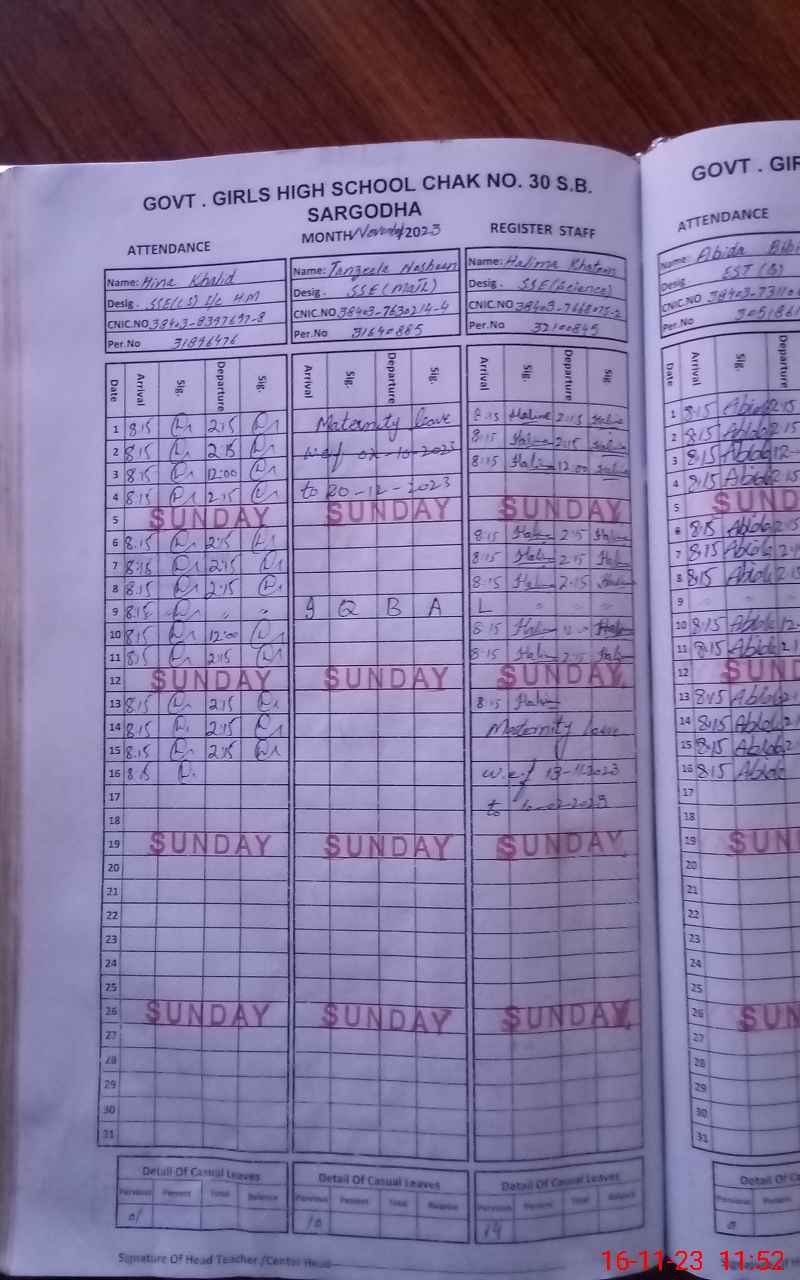 GOVT . GIRLS HIGH SCHOOL CHAK NO. 30 S.B.
SARGODHA
ATTENDANCE MONTH November 2023 REGISTER STAFF
Name: Hina Khalid
Desig. SSE(CS) I/c H.M
CNIC.NO 38403-8397697-8
Per.No 31896476
Name: Tanzeela Nosheen
Desig. SSE (Math)
CNIC.NO 38403-7630214-4
Per.No 31640865
Name: Halima
Desig. SSE (Science)
CNIC.NO 38403-
Per.No 32100845
Date Arrival Sig. Departure Sig. Arrival Sig. Departure Sig. Arrival Sig. Departure Sig.
1 8:15 2:15 Maternity leave 8:15 Halima 2:15 Halima
2 8:15 2:15 w.e.f 02-10-2023 8:15 Halima 2:15 Halima
3 8:15 12:00 8:15 Halima 12:00 Halima
4 8:15 2:15 to 20-12-2023
5 SUNDAY SUNDAY SUNDAY
6 8:15 2:15 8:15 Halima 2:15 Halima
7 8:15 2:15 8:15 Halima 2:15 Halima
8 8:15 2:15 8:15 Halima 2:15 Halima
9 8:15 " " I Q B A L " " "
10 8:15 12:00 8:15 Halima Halima
11 8:15 2:15 8:15 Halima 2:15 Halima
12 SUNDAY SUNDAY SUNDAY
13 8:15 2:15 8:15 Halima
14 8:15 2:15 Maternity leave
15 8:15 2:15
16 8:15 w.e.f 13-11-2023
17 to
18
19 SUNDAY SUNDAY SUNDAY
20
21
22
23
24
25
26 SUNDAY SUNDAY SUNDAY
27
28
29
30
31
Detail Of Casual Leaves Detail Of Casual Leaves Detail Of Casual Leaves
Pervious Present Total Balance Pervious Present Total Balance Pervious Present Total Balance
01 10 14
Signature Of Head Teacher /Center Head
GOVT . GIR
ATTENDANCE
Name: Abida Bibi
Desig. EST (G)
CNIC.NO
Per.No
Date Arrival Sig. Departure
1 8:15 Abida 2:15
2 8:15 Abida 2:15
3 8:15 Abida 12
4 8:15 Abida 2:15
5 SUND
6 8:15 Abida 2:15
7 8:15 Abida 2:1
8 8:15 Abida 2:15
9
10 8:15 Abida 12
11 8:15 Abida 2:1
12 SUND
13 8:15 Abida 2:1
14 8:15 Abida 2:1
15 8:15 Abida 2:1
16 8:15 Abida
17
18
19 SUN
20
21
22
23
24
25
26 SUN
27
28
29
30
31
Detail Of Ca
Pervious Present
16-11-23 11:52